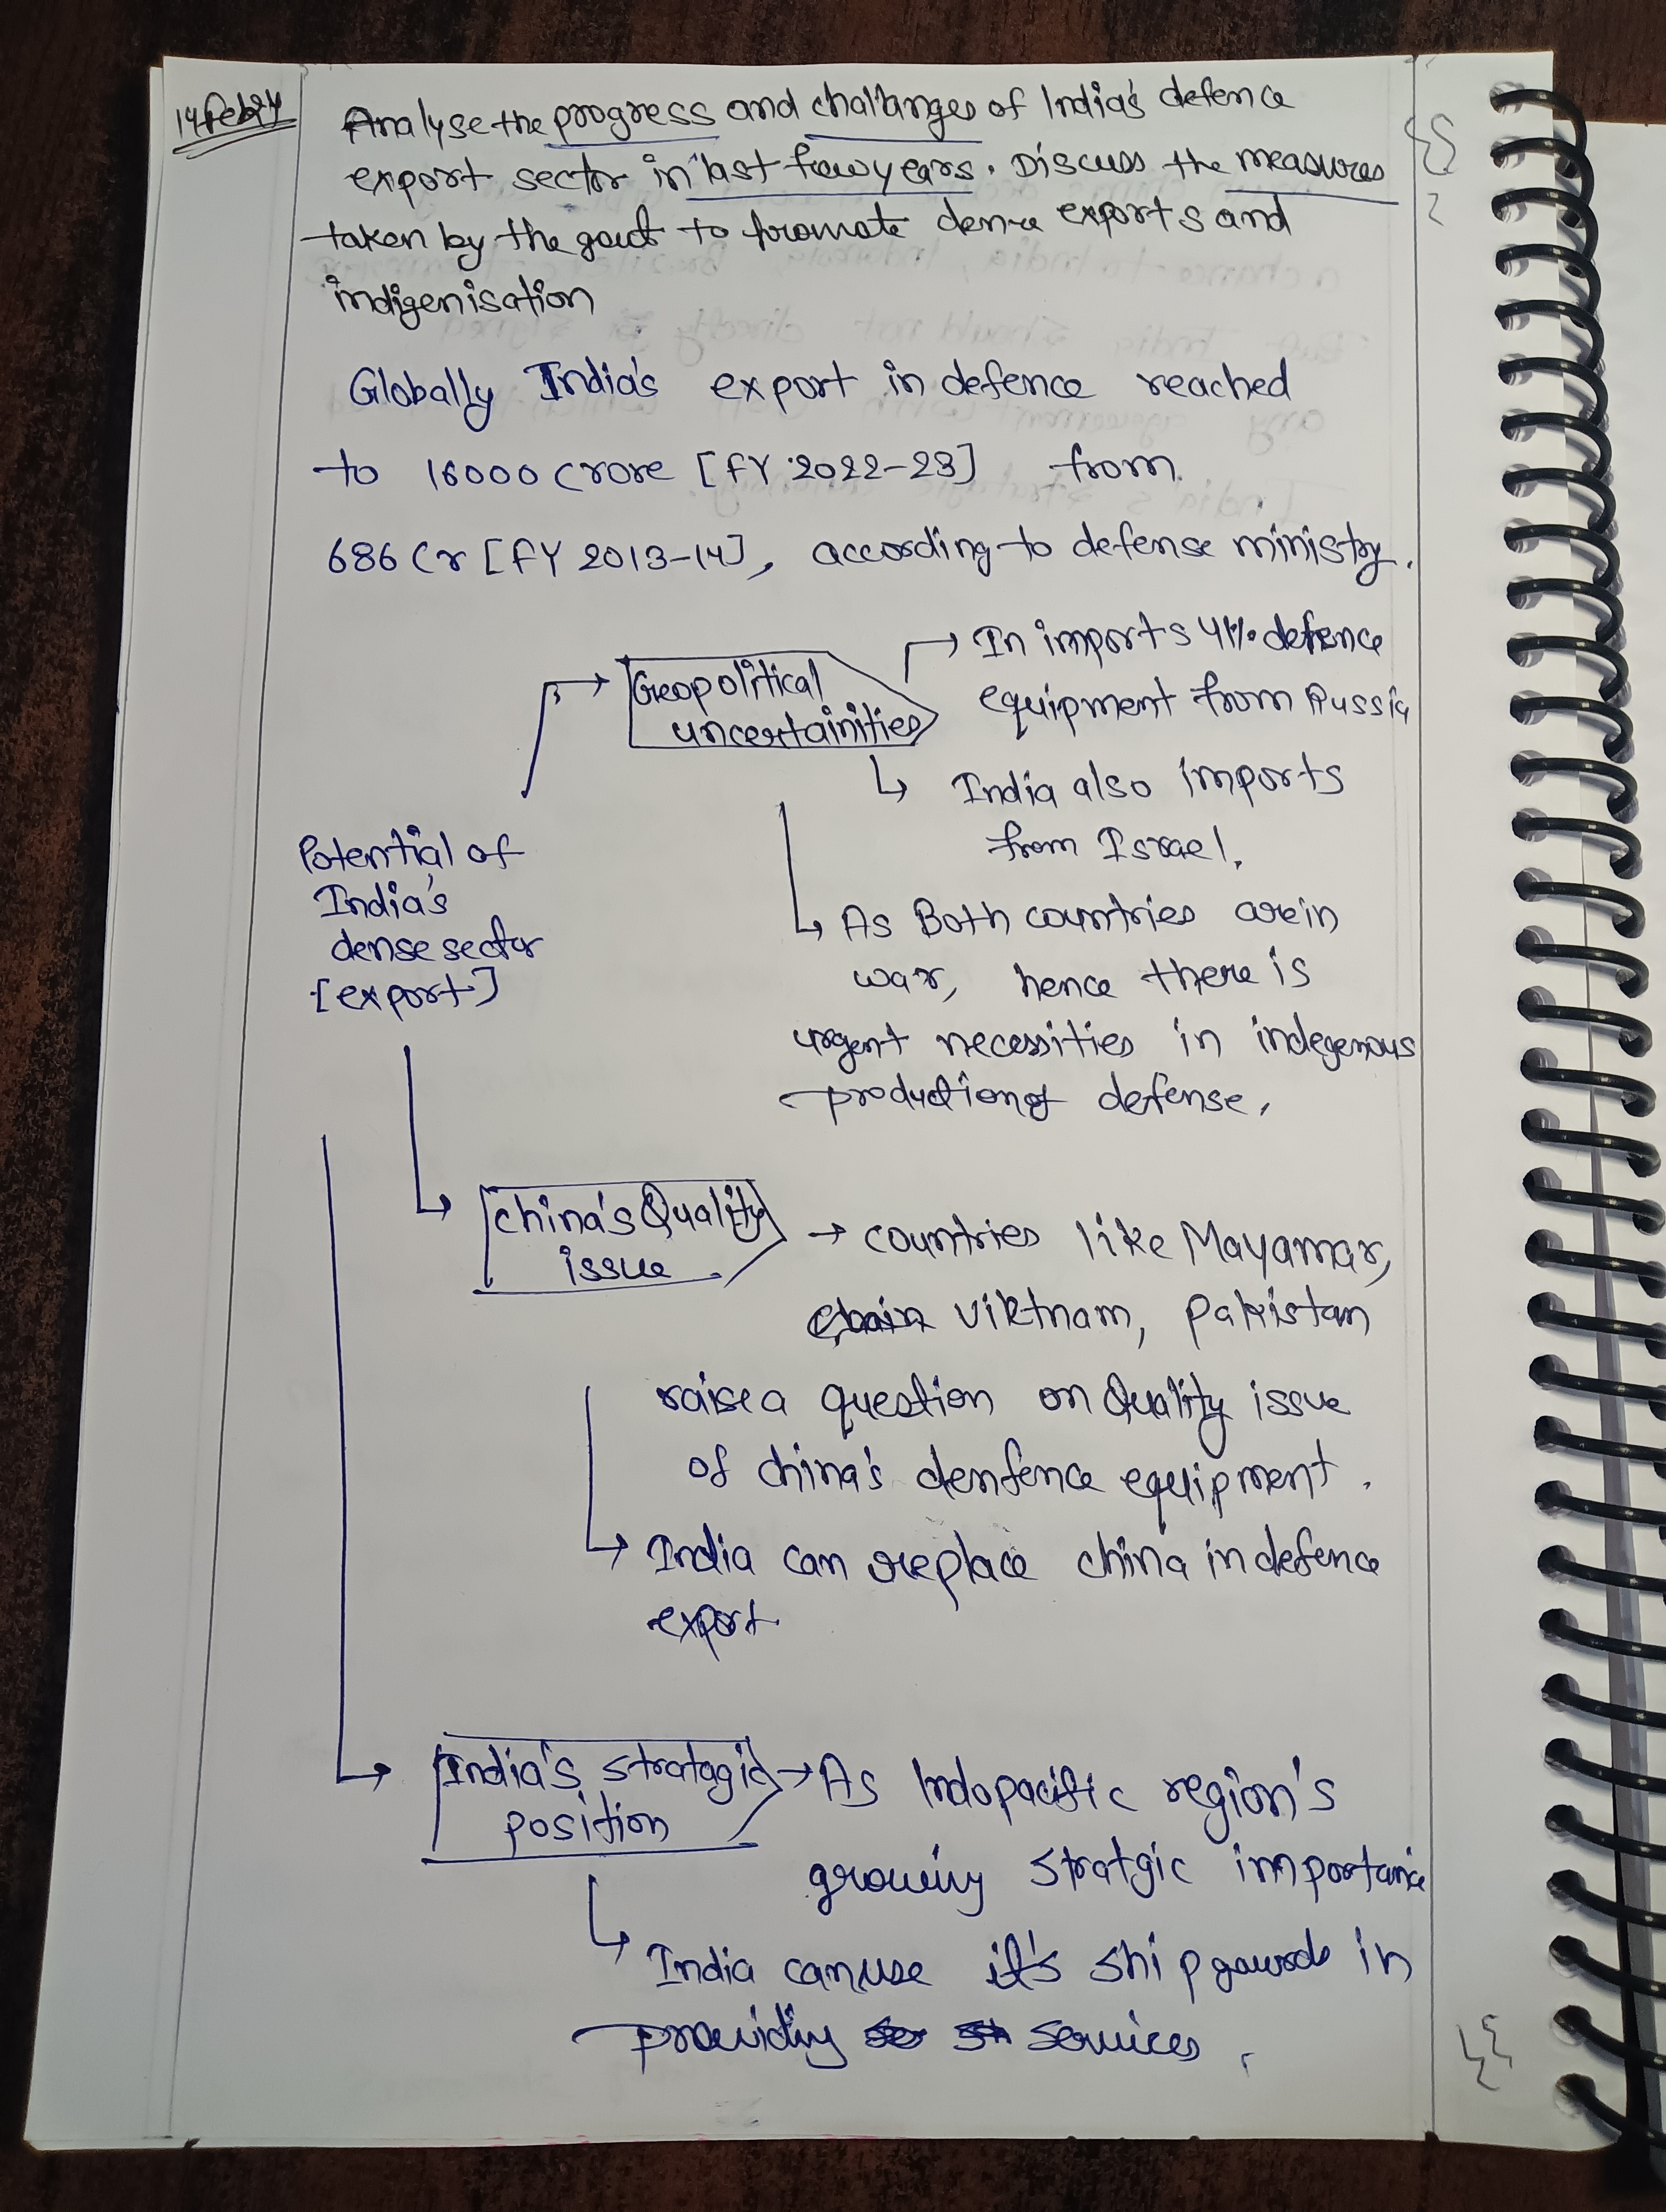 14 Feb 24
Analyse the progress and challanges of India's defence
export sector in last few years. Discuss the measures
taken by the govt to promote dence exports and
indigenisation
Globally India's export in defence reached
to 16000 Crore [FY 2022-23] from
686 Cr [FY 2013-14], according to defense ministry.
Geopolitical
uncertainities
→ In imports 41% defence
equipment from Russia
↳ India also imports
from Israel.
↳ As Both countries are in
war, hence there is
urgent necessities in indegenous
production of defense.
Potential of
India's
dense sector
[export]
China's Quality
issue
→ countries like Mayamar,
Vietnam, Pakistan
raise a question on Quality issue
of china's denfence equipment.
↳ India can replace china in defence
export
India's stratagic
position
→ As Indopacific region's
growing stratgic importance
↳ India can use it's shipyards in
providing services.